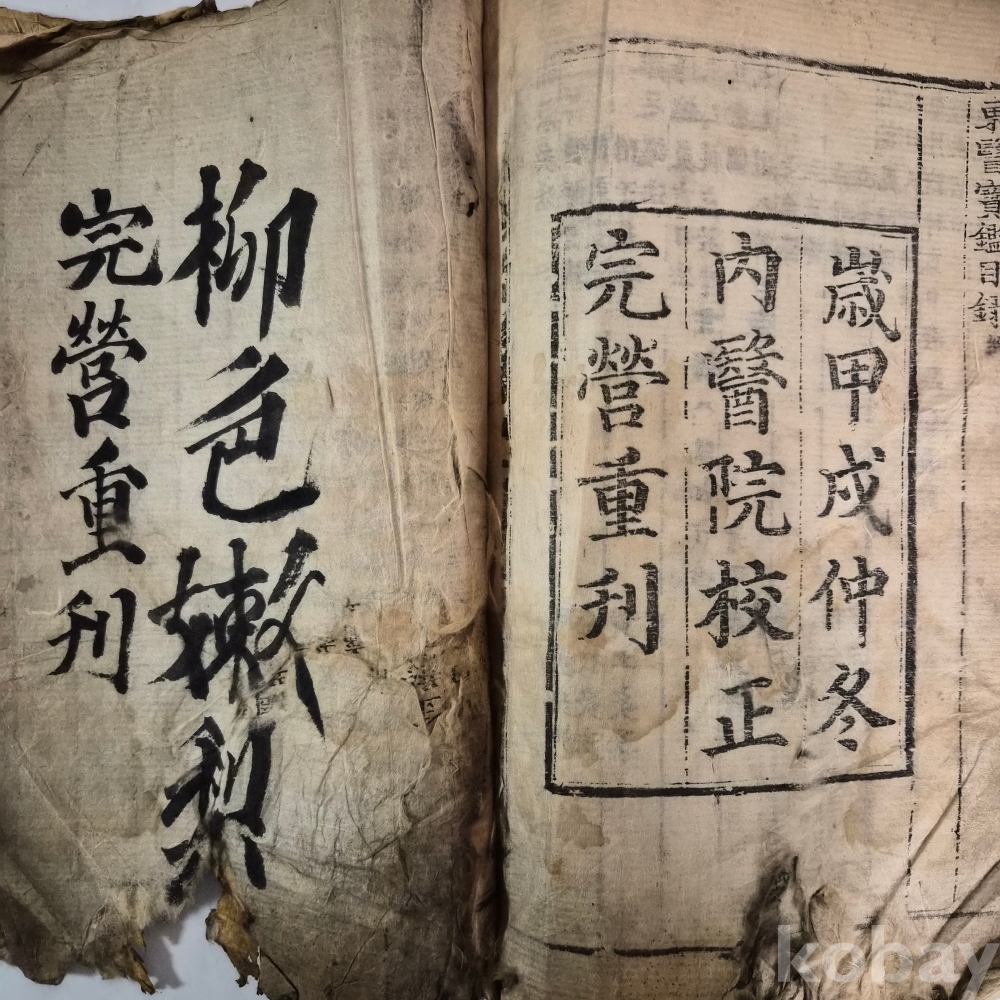 東醫寶鑑目錄
歲甲戌仲冬
內醫院校正
完營重刊
柳色嫩梨
完營重刊
kobay